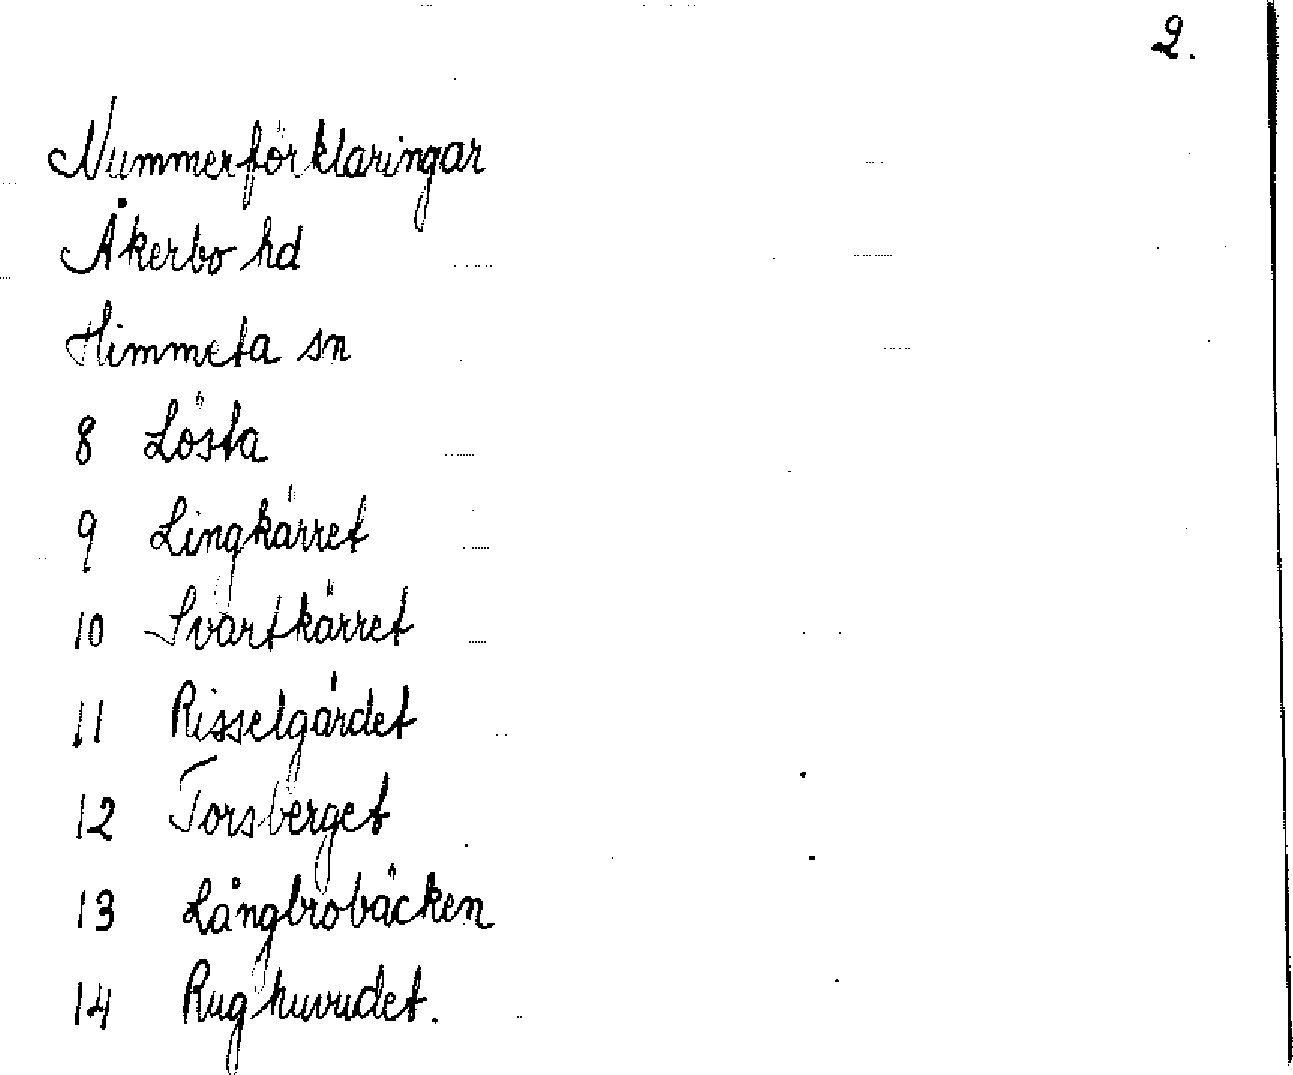 2.
Nummerförklaringar
Åkerbo hd
Himmeta sn
8 Lösta
9 Lingkärret
10 Svartkärret
11 Risselgärdet
12 Torsberget
13 Långbrobäcken
14 Rughuvudet.